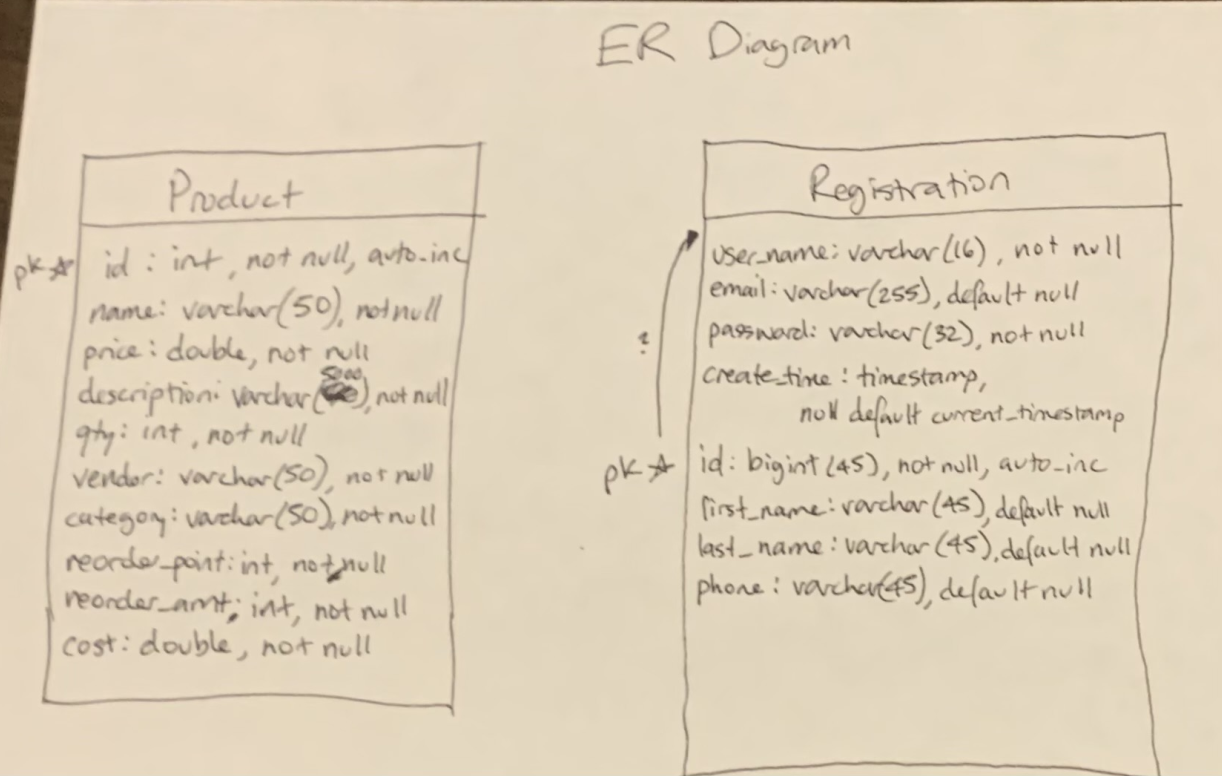 ER Diagram
Product
pk ☆ id : int, not null, auto_inc
name: varchar(50), not null
price : double, not null
5000
description: varchar( ), not null
qty: int, not null
vendor: varchar(50), not null
category: varchar(50), not null
reorder_point: int, not null
reorder_amt; int, not null
cost: double, not null
Registration
user_name: varchar(16), not null
email: varchar(255), default null
password: varchar(32), not null
create_time : timestamp,
null default current_timestamp
?
pk ☆ id: bigint(45), not null, auto_inc
first_name: varchar(45), default null
last_name: varchar(45), default null
phone: varchar(45), default null